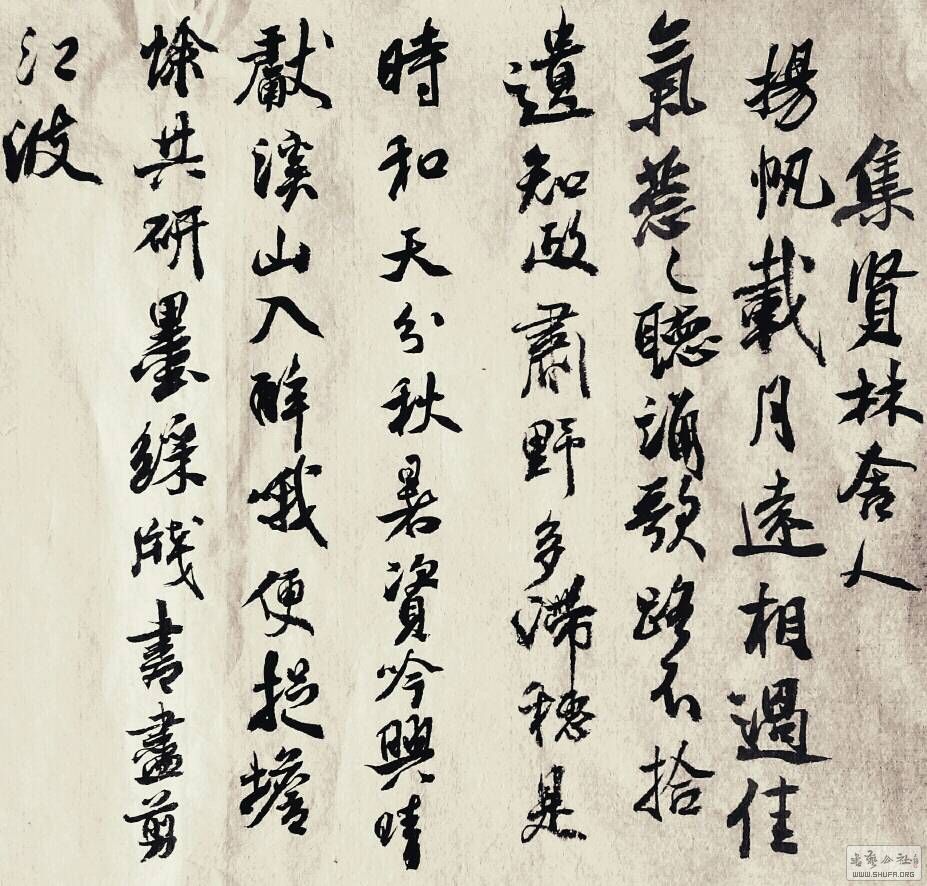 集賢林舍人
揚帆載月遠相過佳
氣葱〻聽誦歌路不拾
遺知政肅野多滯穗是
時和天分秋暑資吟興晴
獻溪山入醉哦便捉蟾
蜍共研墨綵牋書盡剪
江波
書藝公社
WWW.SHUFA.ORG